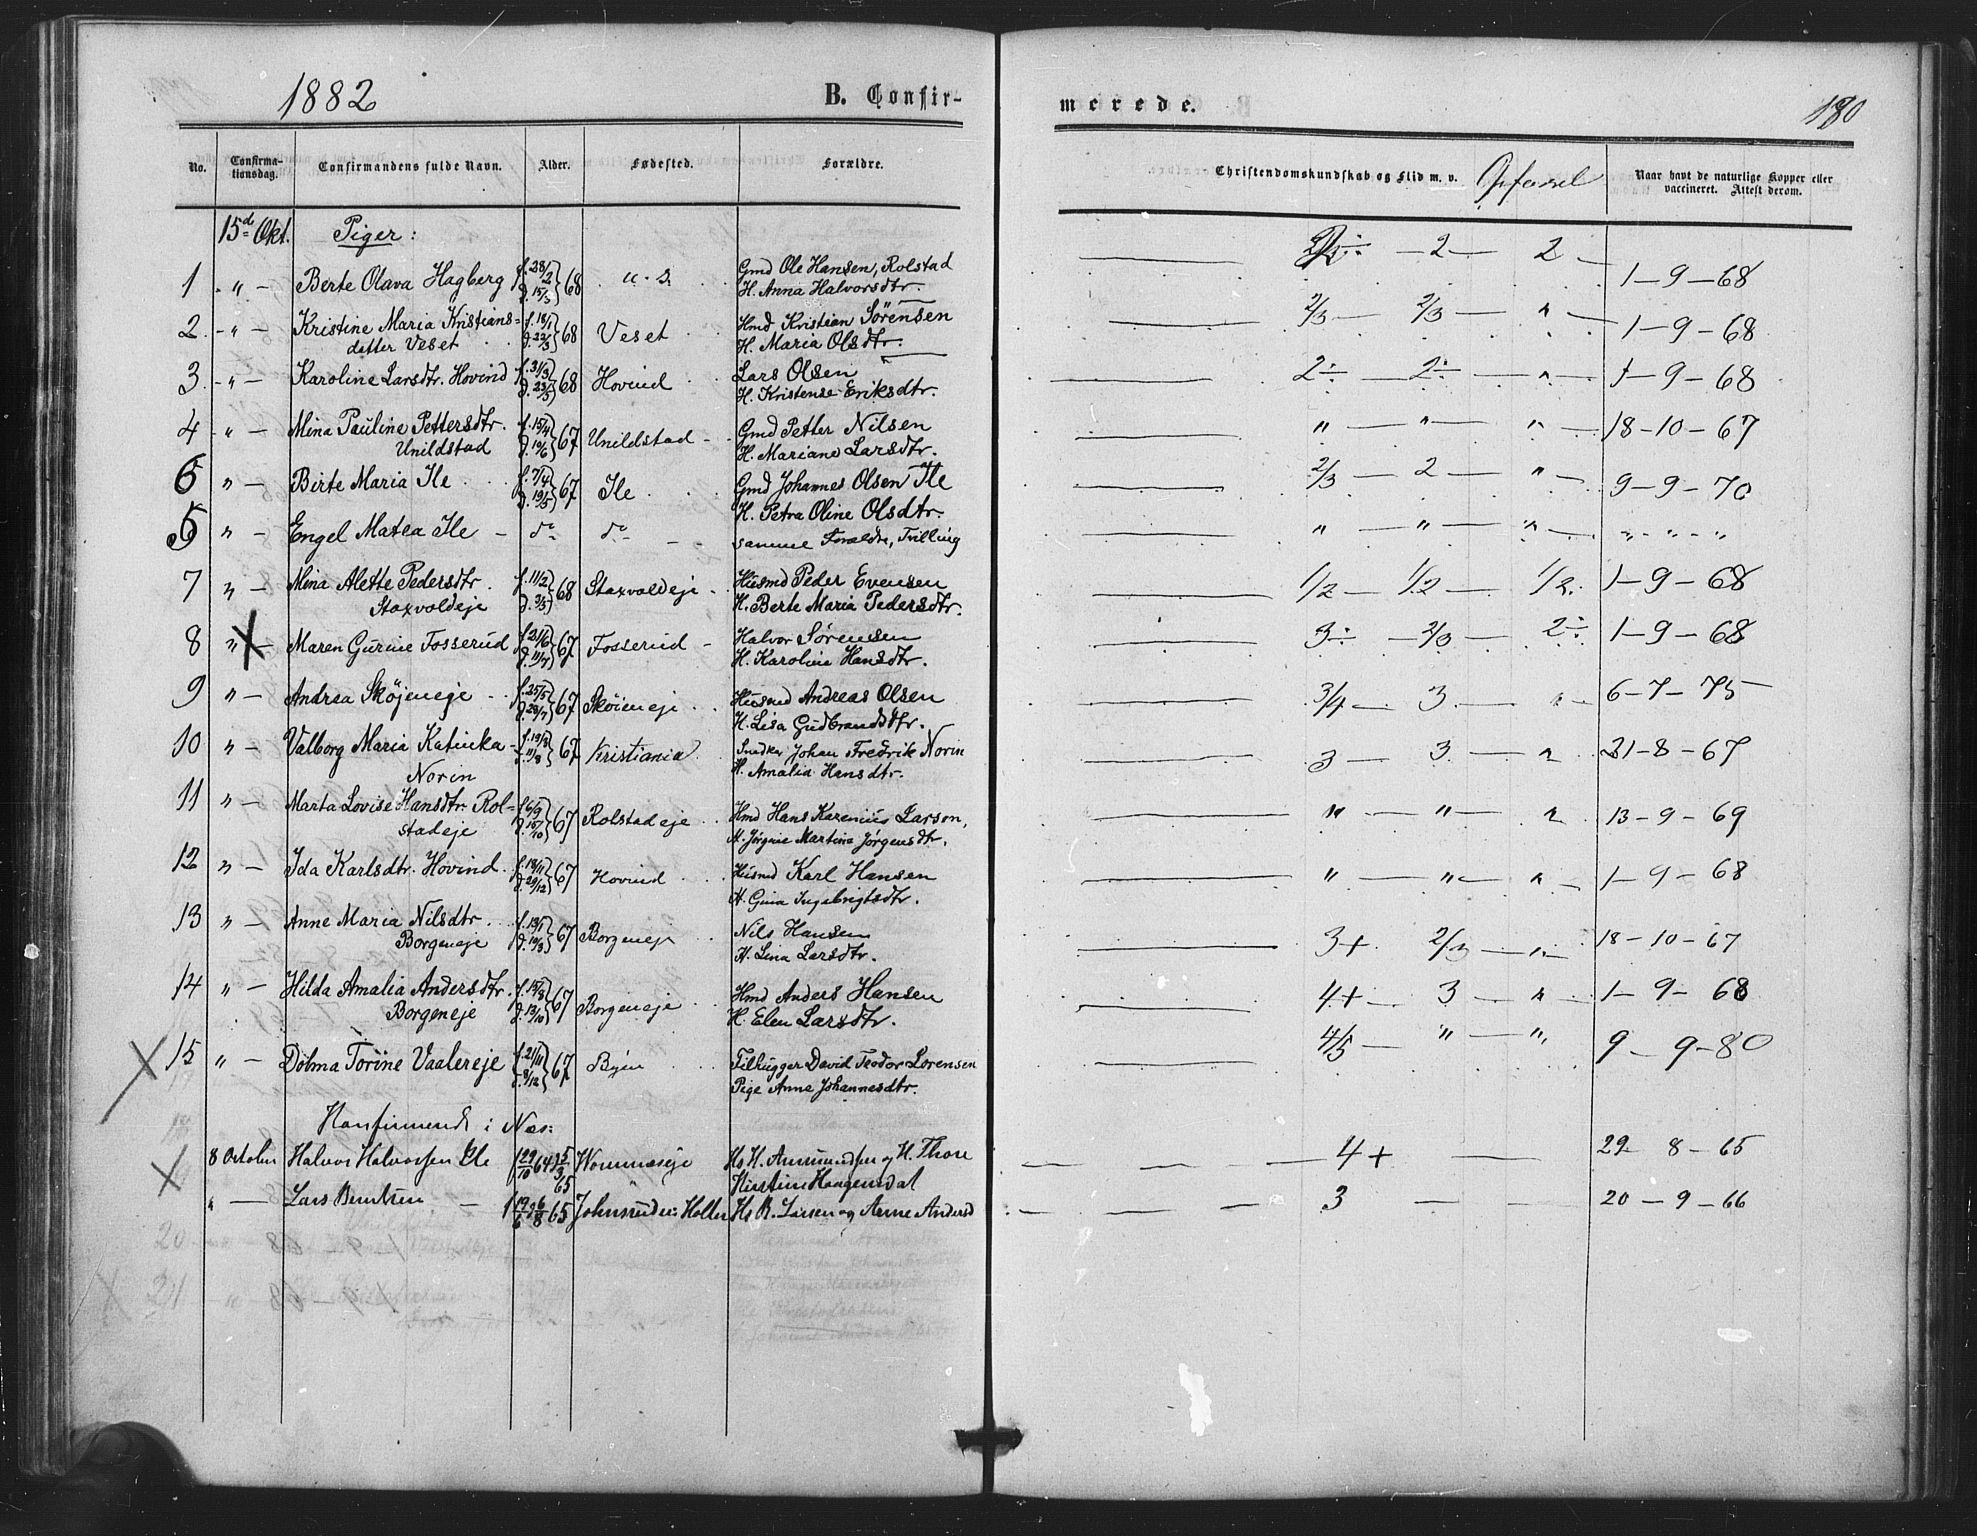 1882 B. Confir-
merede. 180
No. Confirma-tionsdag. Confirmandens fulde Navn. Alder. Fødested. Forældre. Christendomskundskab og Flid m. v. Opførsel Naar havt de naturlige Kopper eller vaccineret. Attest derom.
15d Okt. Piger:
1 " — Berte Olava Hagberg f. 28/2 d. 15/3 68 Gmd Ole Hansen, Rolstad — 2 — 2 — 1-9-68
H. Anna Halvorsdtr.
2 " — Kristine Maria Kristians= f. 18/1 d. 22/3 68 Veset Hmd Kristian Sörensen 2/3 — 2/3 — " — 1-9-68
datter Veset H. Maria Olsdtr.
3 " — Karoline Larsdtr. Hovind f. 31/3 d. 23/5 68 Hovind Lars Olsen 2÷ — 2÷ — " — 1-9-68
H. Kristense Eriksdtr.
4 " — Mina Pauline Pettersdtr. f. 15/4 d. 19/6 67 Unildstad Gmd Petter Nilsen " — " — " — 18-10-67
Unildstad H. Mariane Larsdtr.
6 " — Birte Maria Ile f. 7/4 d. 19/5 67 Ile Gmd Johannes Olsen Ile 2/3 — 2 — " — 9-9-70
H. Petra Oline Olsdtr.
5 " — Engel Matea Ile — do do samme Forældre, Tvilling " — " — " — " - " - "
7 " — Mina Alette Pedersdtr. f. 11/2 d. 3/5 68 Staxvoldeje Husmd Peder Evensen 1/2 — 1/2 — 1/2 1-9-68
Staxvoldeje H. Berte Maria Pedersdtr.
8 " — Maren Gurine Fosserud f. 21/6 d. 11/7 67 Fosserud Halvor Sørensen 3÷ — 2/3 — 2÷ 1-9-68
H. Karoline Hansdtr.
9 " — Andrea Skøjeneje f. 25/5 d. 28/7 67 Skøieneje Husmd Andreas Olsen 3/4 — 3 — " 6-7-75
H. Lisa Gudbrandsdtr.
10 " — Valborg Maria Katinka f. 19/3 d. 11/8 67 Kristiania Snedker Johan Fredrik Norin 3 — 3 — " 31-8-67
Norin H. Amalia Hansdtr.
11 " — Marta Lovise Hansdtr. Rol= f. 6/9 d. 15/10 67 Rolstadeje Hmd Hans Karenius Larson, " — " — " 13-9-69
stadeje H. Jørgine Martine Jørgensdtr.
12 " — Ida Karlsdtr. Hovind f. 18/11 d. 29/12 67 Hovind Husmd Karl Hansen " — " — " 1-9-68
H. Gina Ingebrigtsdtr.
13 " — Anne Maria Nilsdtr. f. 13/1 d. 19/3 67 Borgeneje Nils Hansen 3+ 2/3 — " 18-10-67
Borgeneje H. Lina Larsdtr.
14 " — Hilda Amalia Andersdtr. f. 15/8 d. 13/10 67 Borgeneje Hmd Anders Hansen 4+ — 3 — " 1-9-68
Borgeneje H. Elen Larsdtr.
15 " — Dolma Torine Vaalereje f. 21/11 d. 8/12 67 Byen Filhugger David Teodor Lorensen 4/5 — " — " 9-9-80
Pige Anne Johannesdtr.
Konfirmerede i Næs:
8 October Halvor Halvorsen Ile 29/10 64 5/3 65 H. Thore 4+ 29-8-65
" — Lars Berntsen — 19/6 6/8 65 Hs B. Larsen og Anne Andersd 3 20-9-66